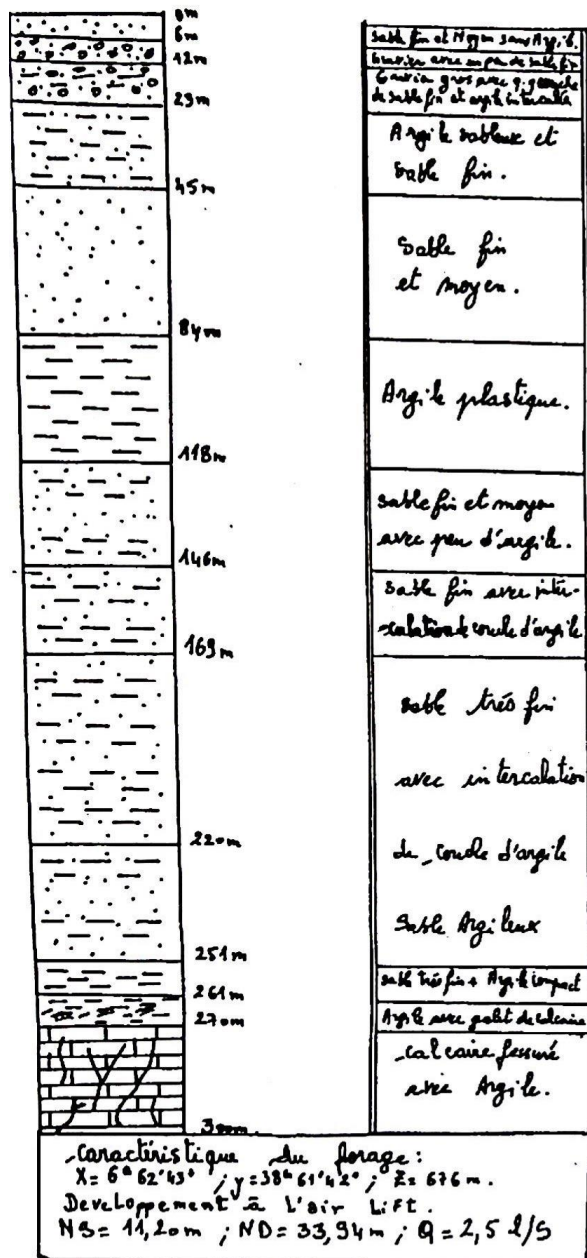 0m
6m
12m
23m
45m
84m
118m
146m
169m
220m
251m
261m
270m
300m
Sable fin et Moyen sans Argile
Gravier avec un peu de sable fin
Gravier gros avec
de sable fin et argile intercalée
Argile sableux et
sable fin.
Sable fin
et moyen.
Argile plastique.
sable fin et moyen
avec peu d'argile.
Sable fin avec inter-
-calation de couche d'argile
sable trés fin
avec intercalation
de couche d'argile
Sable Argileux
sable trés fin + Argile compact
Argile avec galet de calcaire
calcaire fissuré
avec Argile.
Caractéristique du forage:
X= 6ᵍ 62'43" ; y=38ᵍ 61'42" ; Z= 676 m.
Developpement à l'air Lift.
NS= 11,20m ; ND= 33,94m ; Q= 2,5 l/s